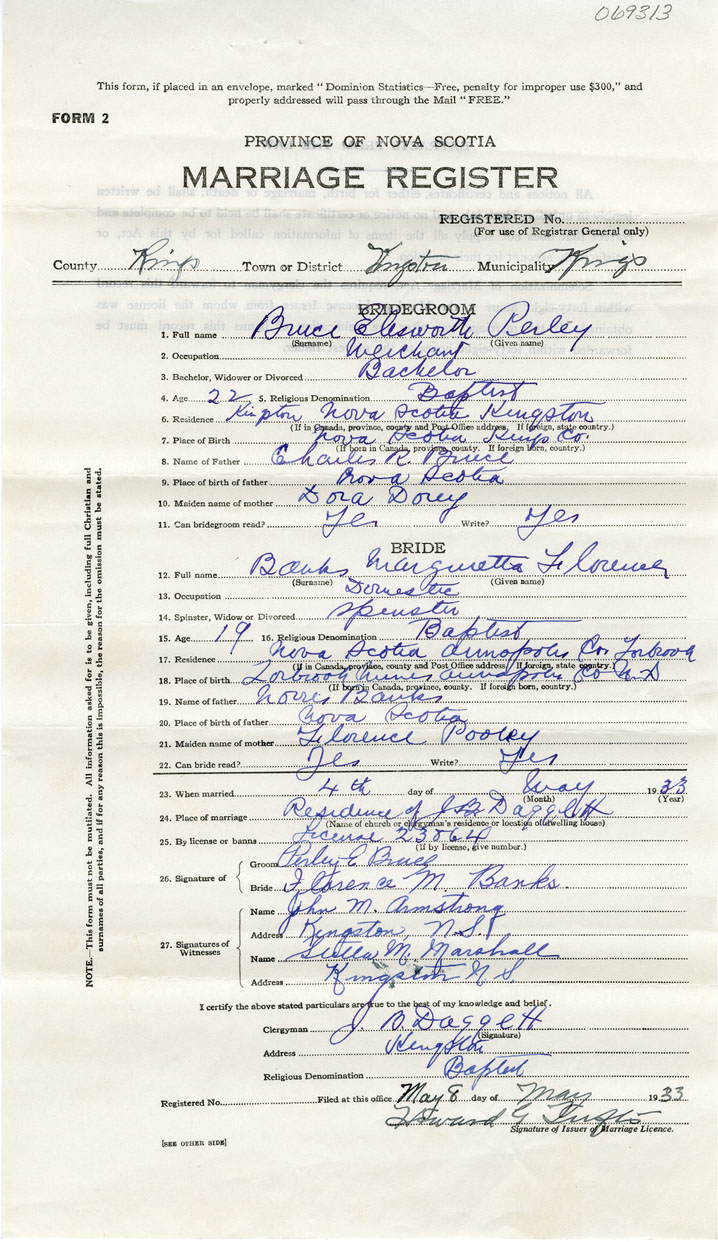 069313
This form, if placed in an envelope, marked "Dominion Statistics—Free, penalty for improper use $300," and
properly addressed will pass through the Mail "FREE."
FORM 2
PROVINCE OF NOVA SCOTIA
MARRIAGE REGISTER
REGISTERED No.
(For use of Registrar General only)
County Kings Town or District Kingston Municipality Kings
BRIDEGROOM
1. Full name Bruce Elesworth Perley
(Surname) (Given name)
2. Occupation Merchant
3. Bachelor, Widower or Divorced Bachelor
4. Age 22 5. Religious Denomination Baptist
6. Residence Nova Scotia Kingston
(If in Canada, province, county and Post Office address. If foreign, state country.)
7. Place of Birth Nova Scotia Kings Co.
(If born in Canada, province, county. If foreign born, country.)
8. Name of Father Charles R. Bruce
9. Place of birth of father Nova Scotia
10. Maiden name of mother Dora Dorey
11. Can bridegroom read? Yes Write? Yes
BRIDE
12. Full name Banks Marguretta Florence
(Surname) (Given name)
13. Occupation Domestic
14. Spinster, Widow or Divorced Spinster
15. Age 19 16. Religious Denomination Baptist
17. Residence Nova Scotia Annapolis Co. Torbrook
(If in Canada, province, county and Post Office address. If foreign, state country.)
18. Place of birth Torbrook Mines Annapolis Co N.S
(If born in Canada, province, county. If foreign born, country.)
19. Name of father Norris Banks
20. Place of birth of father Nova Scotia
21. Maiden name of mother Florence Pooley
22. Can bride read? Yes Write? Yes
23. When married 4th day of May 1933
(Month) (Year)
24. Place of marriage Residence of J B Daggett
(Name of church or clergyman's residence or location of dwelling house)
25. By license or banns License 23064
(If by license, give number.)
26. Signature of
Groom Perley E Bruce
Bride Florence M. Banks.
27. Signatures of Witnesses
Name John M. Armstrong
Address Kingston, N.S.
Name Stella M. Marshall
Address Kingston N S
I certify the above stated particulars are true to the best of my knowledge and belief.
Clergyman J. B. Daggett
(Signature)
Address Kingston
Religious Denomination Baptist
Registered No. Filed at this office May 8 day of May 1933
Howard G Tufts
Signature of Issuer of Marriage Licence.
[SEE OTHER SIDE]
NOTE.—This form must not be mutilated. All information asked for is to be given, including full Christian and
surnames of all parties, and if for any reason this is impossible, the reason for the omission must be stated.